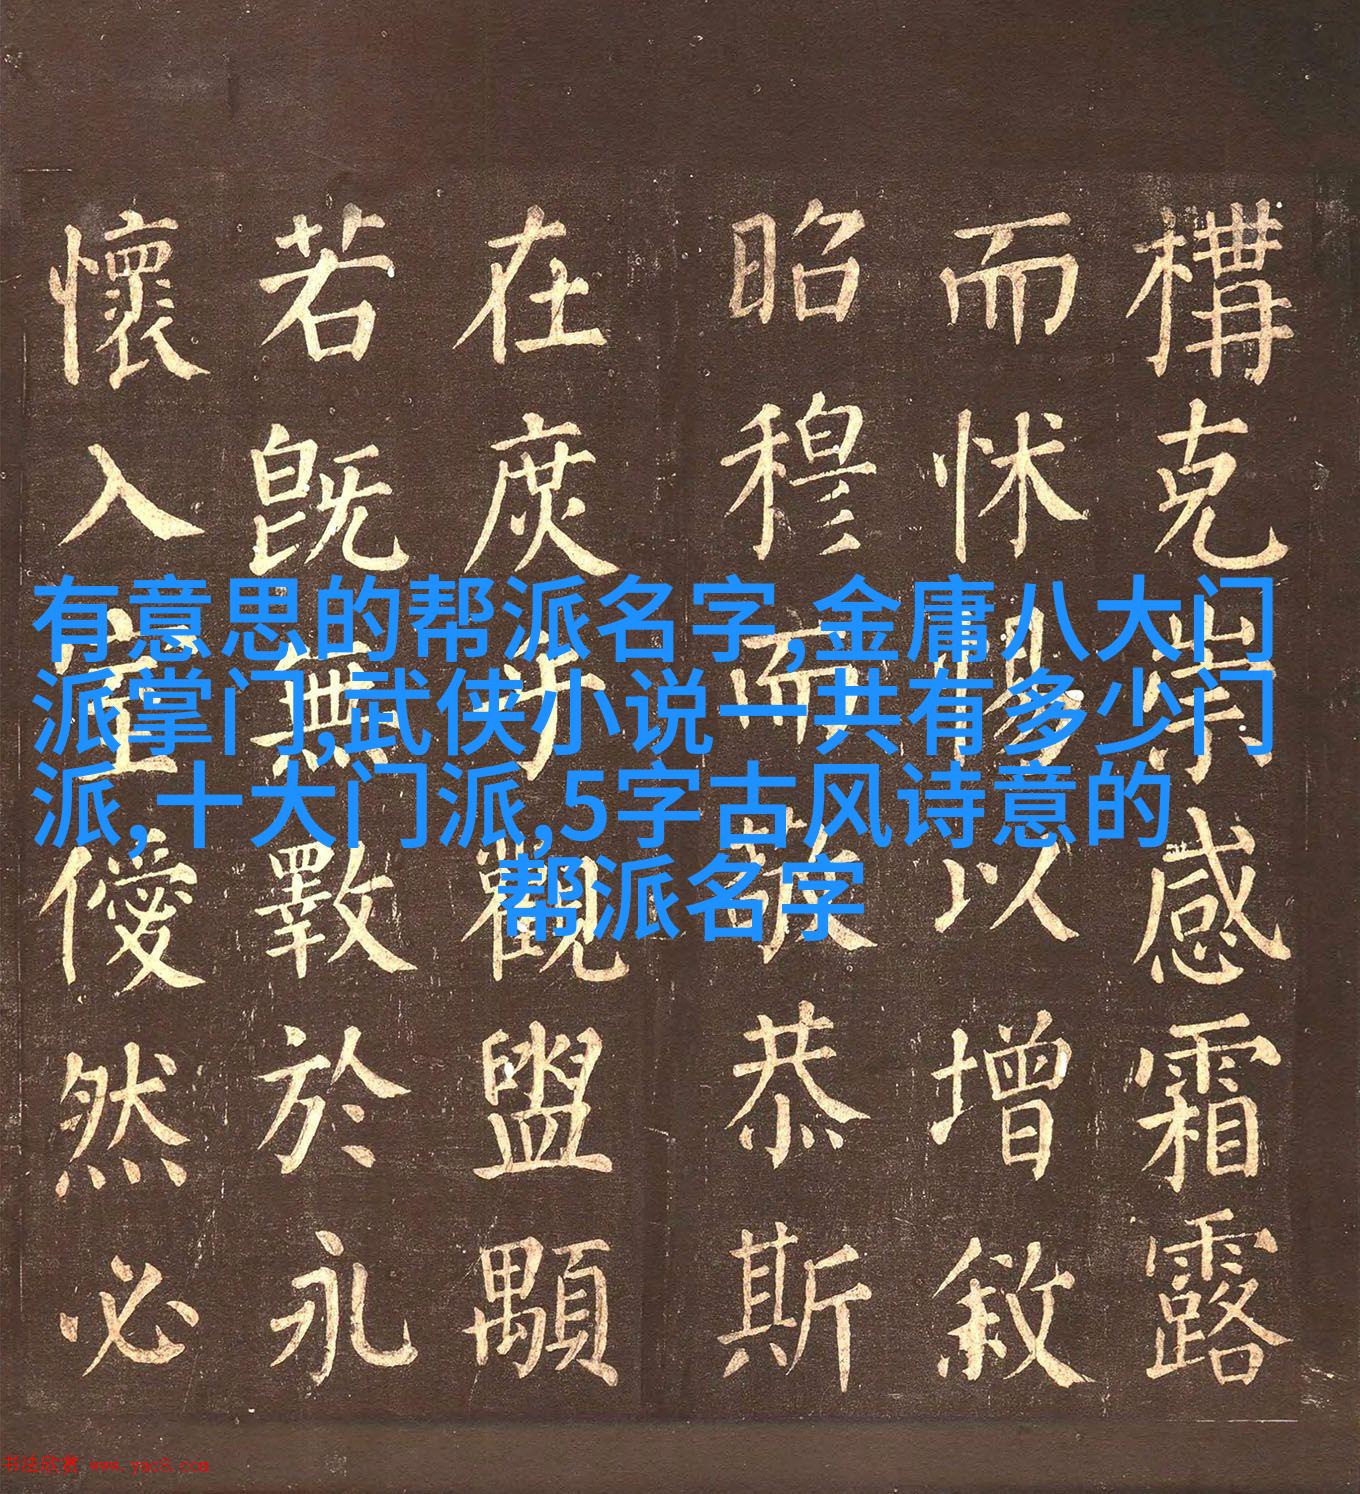 構克崇感霜露
而怵惕以增敘
昭穆而敬恭斯
在庶乎觀盥顒
若既無斁於永
懷入室僾然必
有意思的帮派名字,金庸八大门
派掌门,武侠小说一共有多少门
派,十大门派,5字古风诗意的
帮派名字
书法欣赏 www.yac8.com